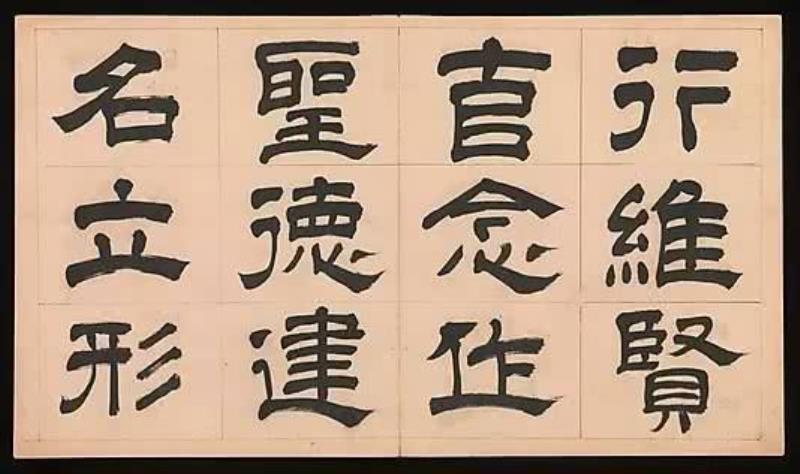 行維賢
克念作
聖德建
名立形